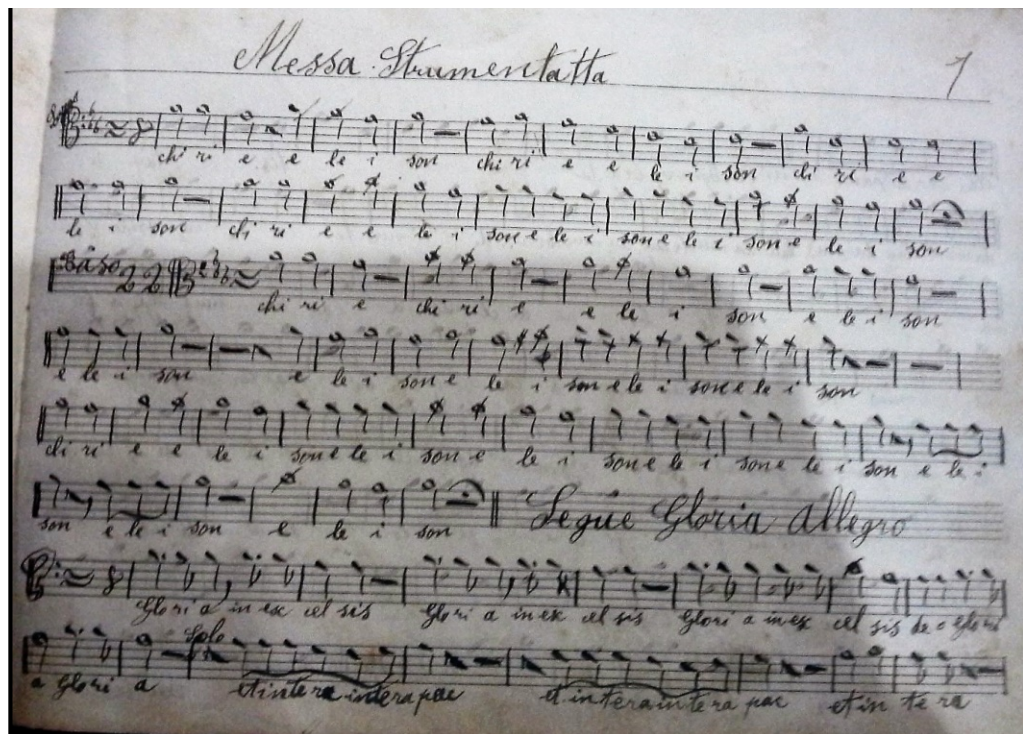 Messa Strumentatta 1
chi ri e e le i son chi ri e e le i son chi ri e e
le i son chi ri e e le i son e le i son e le i son e le i son
Baso 22 chi ri e chi ri e e le i son e le i son
e le i son e le i son e le i son e le i son e le i son
chi ri e e le i son e le i son e le i son e le i son e le i son e le i
son e le i son e le i son Segue Gloria Allegro
Glori a in ex cel sis Glori a in ex cel sis Glori a in ex cel sis de o Glori
Solo
a Glori a et in te ra in te ra pac et in te ra in te ra pac et in te ra